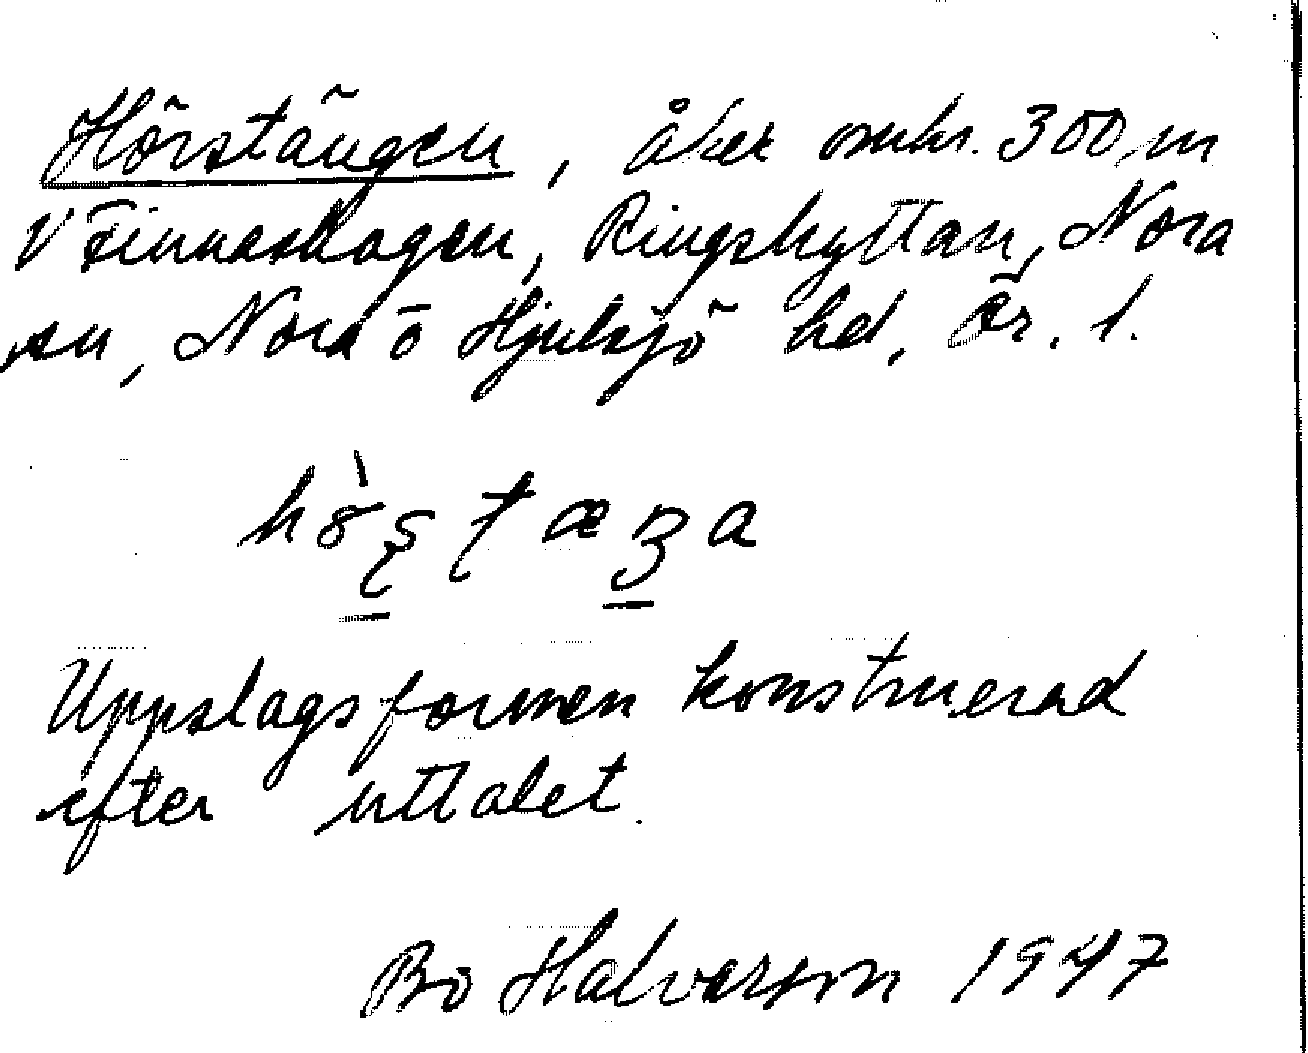 Hörstängen, åker omkr. 300 m
V Finnskogen, Ringshyttan, Nora
sn, Nora o Hjulsjö hd, Ör. l.
Uppslagsformen konstruerad
efter uttalet.
Bo Halvarson 1947